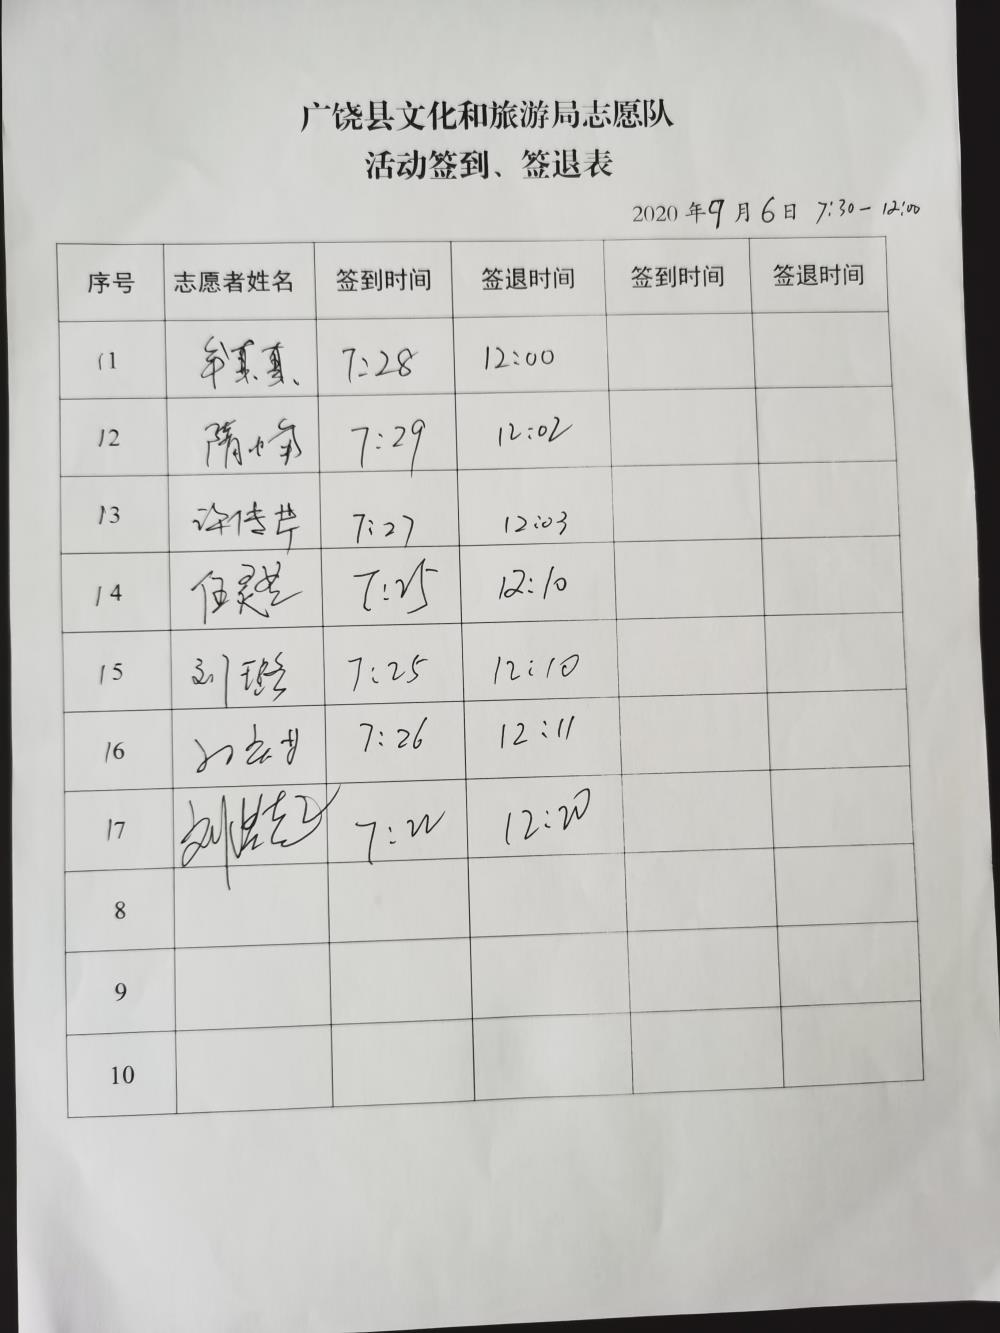 广饶县文化和旅游局志愿队
活动签到、签退表
2020 年 9 月 6 日 7:30-12:00
序号 志愿者姓名 签到时间 签退时间 签到时间 签退时间
11 牟真真 7:28 12:00
12 隋 7:29 12:02
13 许传芹 7:27 12:03
14 任 7:25 12:10
15 刘 7:25 12:10
16 7:26 12:11
17 刘 7:22 12:20
8
9
10